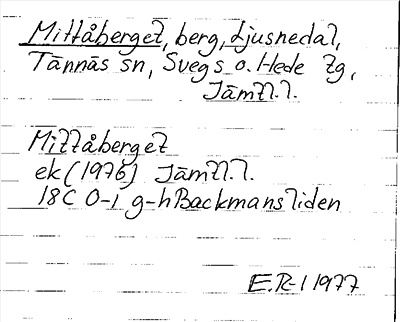 Mittåberget, berg, Ljusnedal,
Tännäs sn, Svegs o. Hede tg,
Jämtl.l.
Mittåberget
ek (1976) Jämtl.l.
18C 0-1 g-h Backmansliden
E.R-l 1977